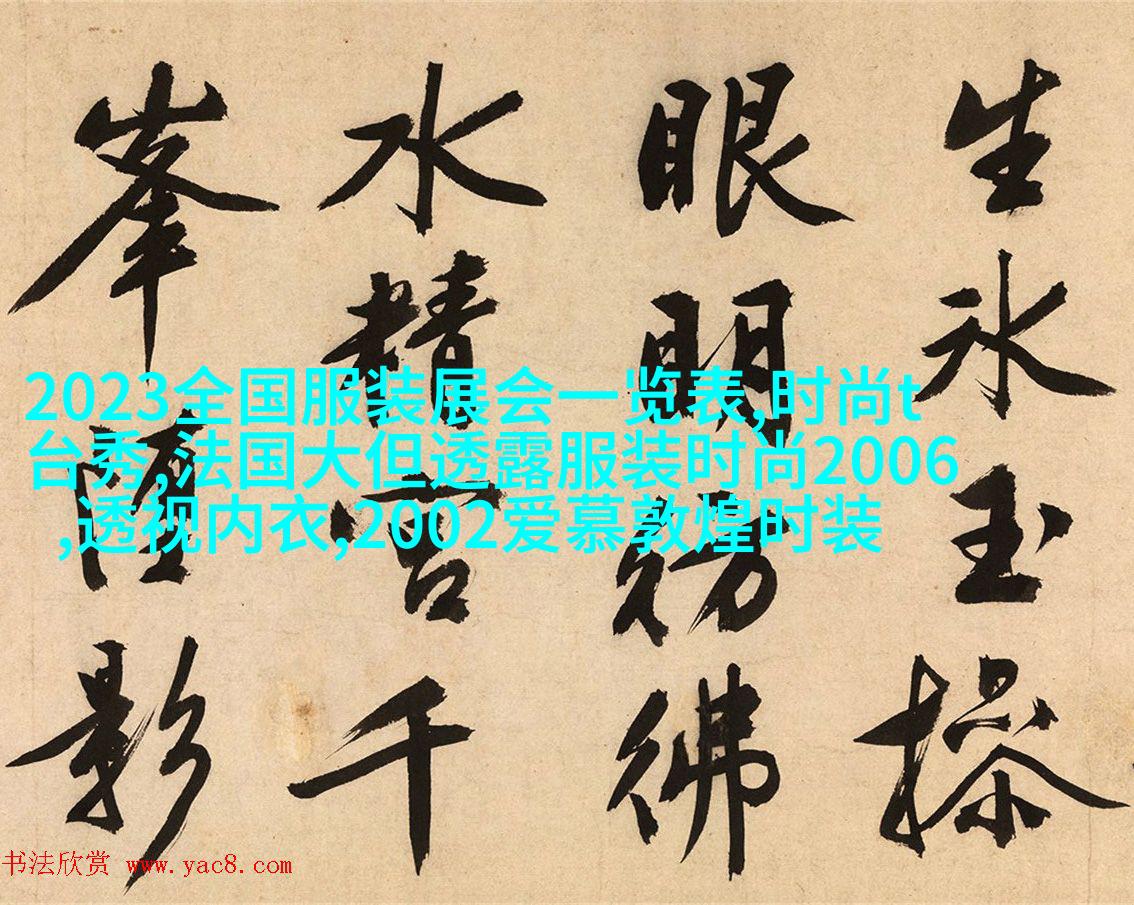 生氷玉操
眼明彷彿
水精宮千
峯陰影
2023全国服装展会一览表,时尚t
台秀,法国大但透露服装时尚2006
,透视内衣,2002爱慕敦煌时装
书法欣赏 www.yac8.com